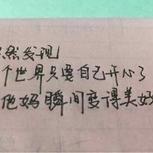 然发现
个世界只要自己开心了
他妈瞬间变得美好